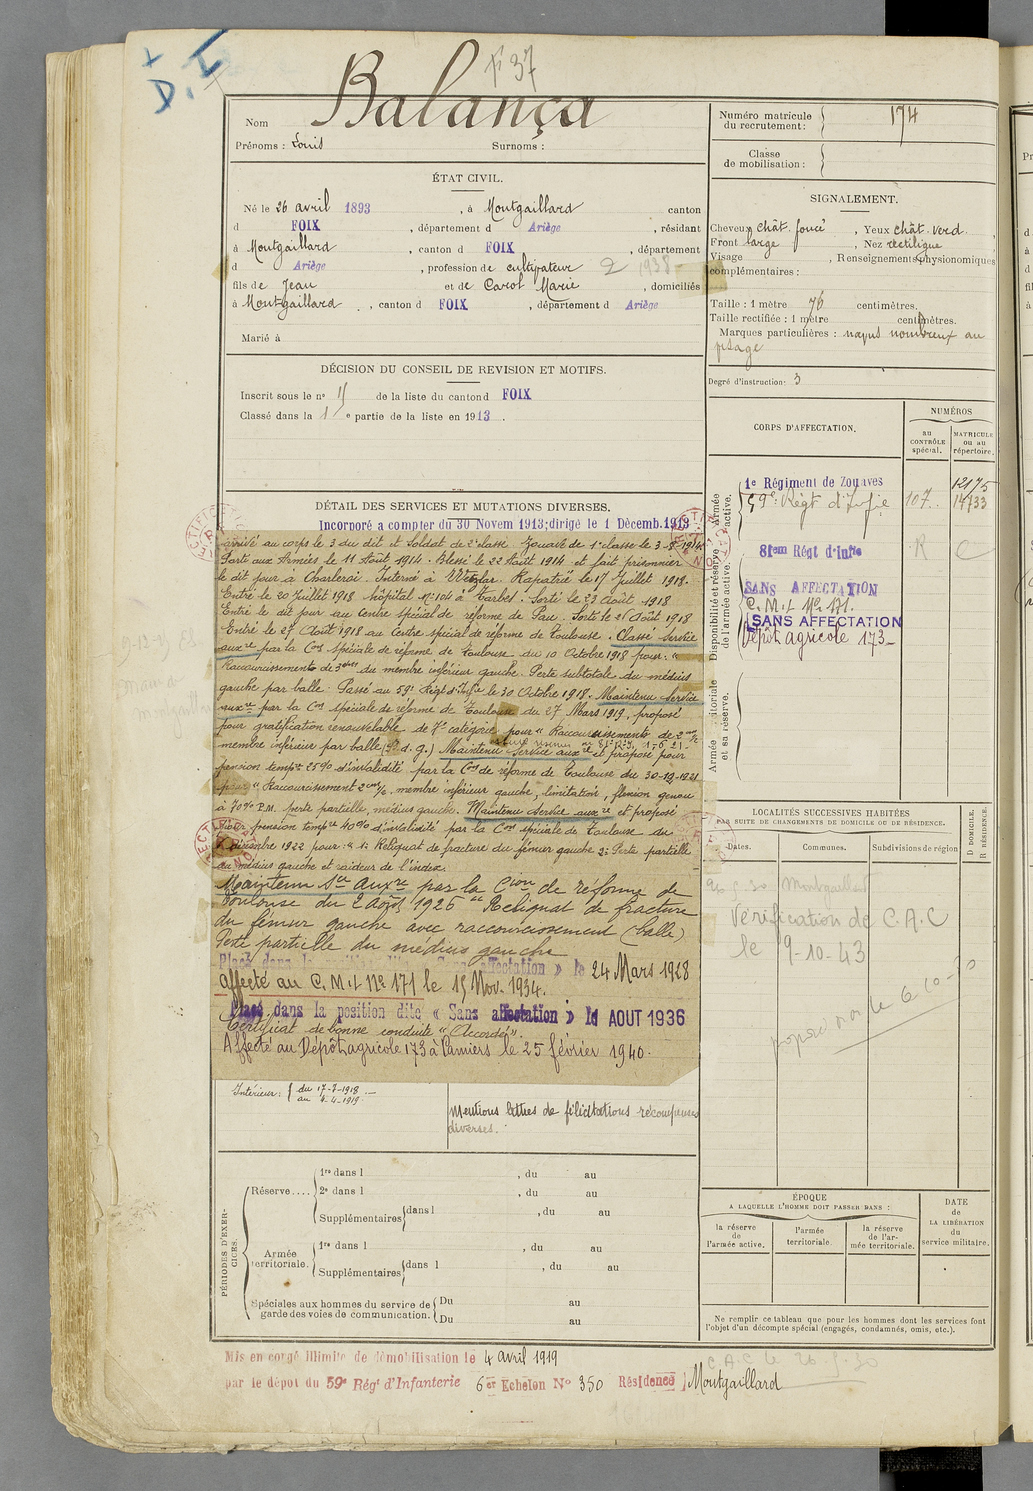 D. I
37
Nom Balança
Prénoms : Louis Surnoms :
ÉTAT CIVIL.
Né le 26 avril 1893, à Montgaillard canton
d FOIX, département d Ariège, résidant
à Montgaillard, canton d FOIX, département
d Ariège, profession de cultivateur 2 1938
fils de Jean et de Carol Marie, domiciliés
à Montgaillard, canton d FOIX, département d Ariège
Marié à
DÉCISION DU CONSEIL DE REVISION ET MOTIFS.
Inscrit sous le n° de la liste du canton d FOIX
Classé dans la 1e partie de la liste en 1913.
DÉTAIL DES SERVICES ET MUTATIONS DIVERSES.
Incorporé a compter du 30 Novem 1913; dirigé le 1 Décemb. 1913
arrivé au corps le 3 du dit et soldat de 2e classe. Zouave de 1e classe le 3-8-1914
Parti aux Armées le 11 Août 1914. Blessé le 22 Août 1914 et fait prisonnier
le dit jour à Charleroi. Interné à Wetzlar. Rapatrié le 17 Juillet 1918.
Entré le 20 Juillet 1918 hôpital N° 101 à Tarbes. Sorti le 23 Août 1918
Entré le dit jour au centre spécial de réforme de Pau. Sorti le 21 Août 1918
Entré le 27 Août 1918 au Centre spécial de réforme de Toulouse. Classé service
auxre par la Con spéciale de réforme de Toulouse du 10 Octobre 1918 pour : "
Raccourcissement de 3 du membre inférieur gauche. Perte subtotale du médius
gauche par balle. Passé au 59e Régt d'Infie le 30 Octobre 1918. Maintenu service
auxre par la Con spéciale de réforme de Toulouse du 27 Mars 1919, proposé
pour gratification renouvelable de 7e catégorie pour " Raccourcissement de 2
membre inférieur par balle Maintenu Service auxre et proposé pour
pension tempre 25% d'invalidité par la Con de réforme de Toulouse du 30-12-1921
pour " Raccourcissement 2 c/m, membre inférieur gauche, limitation, flexion genou
à 70% P.M. perte partielle, médius gauche. Maintenu service auxre et proposé
pour pension tempre 40% d'invalidité par la Con spéciale de Toulouse du
décembre 1922 pour : " 1: Reliquat de fracture du fémur gauche 2: Perte partielle
du médius gauche et raideur de l'index.
Maintenu Sce Auxre par la Cion de réforme de
Toulouse du 2 Août 1926 " Reliquat de fracture
du fémur gauche avec raccourcissement (balle)
Perte partielle du médius gauche
Placé dans la position dite « Sans affectation » le 24 Mars 1928
Affecté au C.M.I N° 171 le 15 Nov. 1934.
Placé dans la position dite « Sans affectation » le 1 AOUT 1936
Certificat de bonne conduite "Accordé".
Affecté au Dépôt agricole 173 à Pamiers le 25 février 1940.
Intérieur : { du 17-7-1918
au 4-4-1919.
Mentions lettres de félicitations récompenses
diverses.
PÉRIODES D'EXERCICES.
Réserve.... 1re dans l , du au
2e dans l , du au
Supplémentaires dans l , du au
Armée territoriale. 1re dans l , du au
Supplémentaires dans l , du au
Spéciales aux hommes du service de garde des voies de communication. Du au
Du au
Mis en congé illimité de démobilisation le 4 avril 1919
par le dépôt du 59e Régt d'Infanterie 6er Echelon N° 350 Résidence Montgaillard
Numéro matricule du recrutement : 174
Classe de mobilisation :
SIGNALEMENT.
Cheveux chât. foncé, Yeux chât. verd.
Front large, Nez rectiligne
Visage , Renseignements physionomiques
complémentaires :
Taille : 1 mètre 76 centimètres.
Taille rectifiée : 1 mètre centimètres.
Marques particulières : nævus nombreux au
visage
Degré d'instruction : 3
CORPS D'AFFECTATION.
NUMÉROS
au CONTRÔLE spécial.
MATRICULE ou au répertoire.
Disponibilité et réserve de l'armée active.
Armée active.
1e Régiment de Zouaves 12175
59e Régt d'Infie 107 14733
81em Régt d'Infie R C
SANS AFFECTATION
C.M.I. N° 171.
SANS AFFECTATION
Dépôt agricole 173
Armée territoriale et sa réserve.
LOCALITÉS SUCCESSIVES HABITÉES
PAR SUITE DE CHANGEMENTS DE DOMICILE OU DE RÉSIDENCE.
Dates. Communes. Subdivisions de région D DOMICILE. R RÉSIDENCE.
Montgaillard
Vérification de C.A.C
le 9-10-43
ÉPOQUE
A LAQUELLE L'HOMME DOIT PASSER DANS :
la réserve de l'armée active.
l'armée territoriale.
la réserve de l'armée territoriale.
DATE de LA LIBÉRATION du service militaire.
Ne remplir ce tableau que pour les hommes dont les services font
l'objet d'un décompte spécial (engagés, condamnés, omis, etc.).
C.A.C le 26.5.30